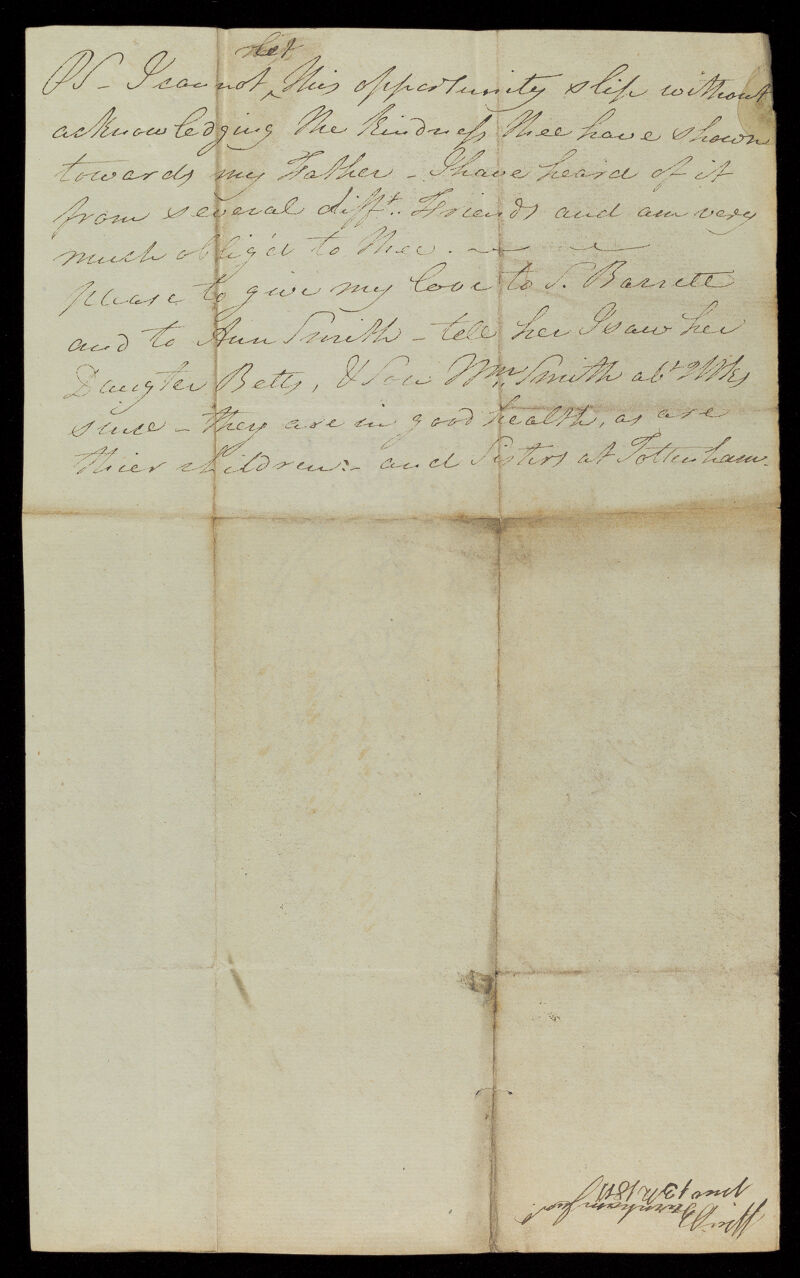 let
PS - I cannot ^ this opportunity slip without
acknowledging the kindness thee have shown
towards my Father - I have heard of it
from several difft. Friends and am very
much oblig'd to thee. —
please to give my love to S. Barrett
and to Ann Smith - tell her I saw her
Daugter Betts, & Son Wm. Smith abt 2 Wks
since - they are in good health, as are
thier children:- and Sisters at Tottenham.
June 13th 1811